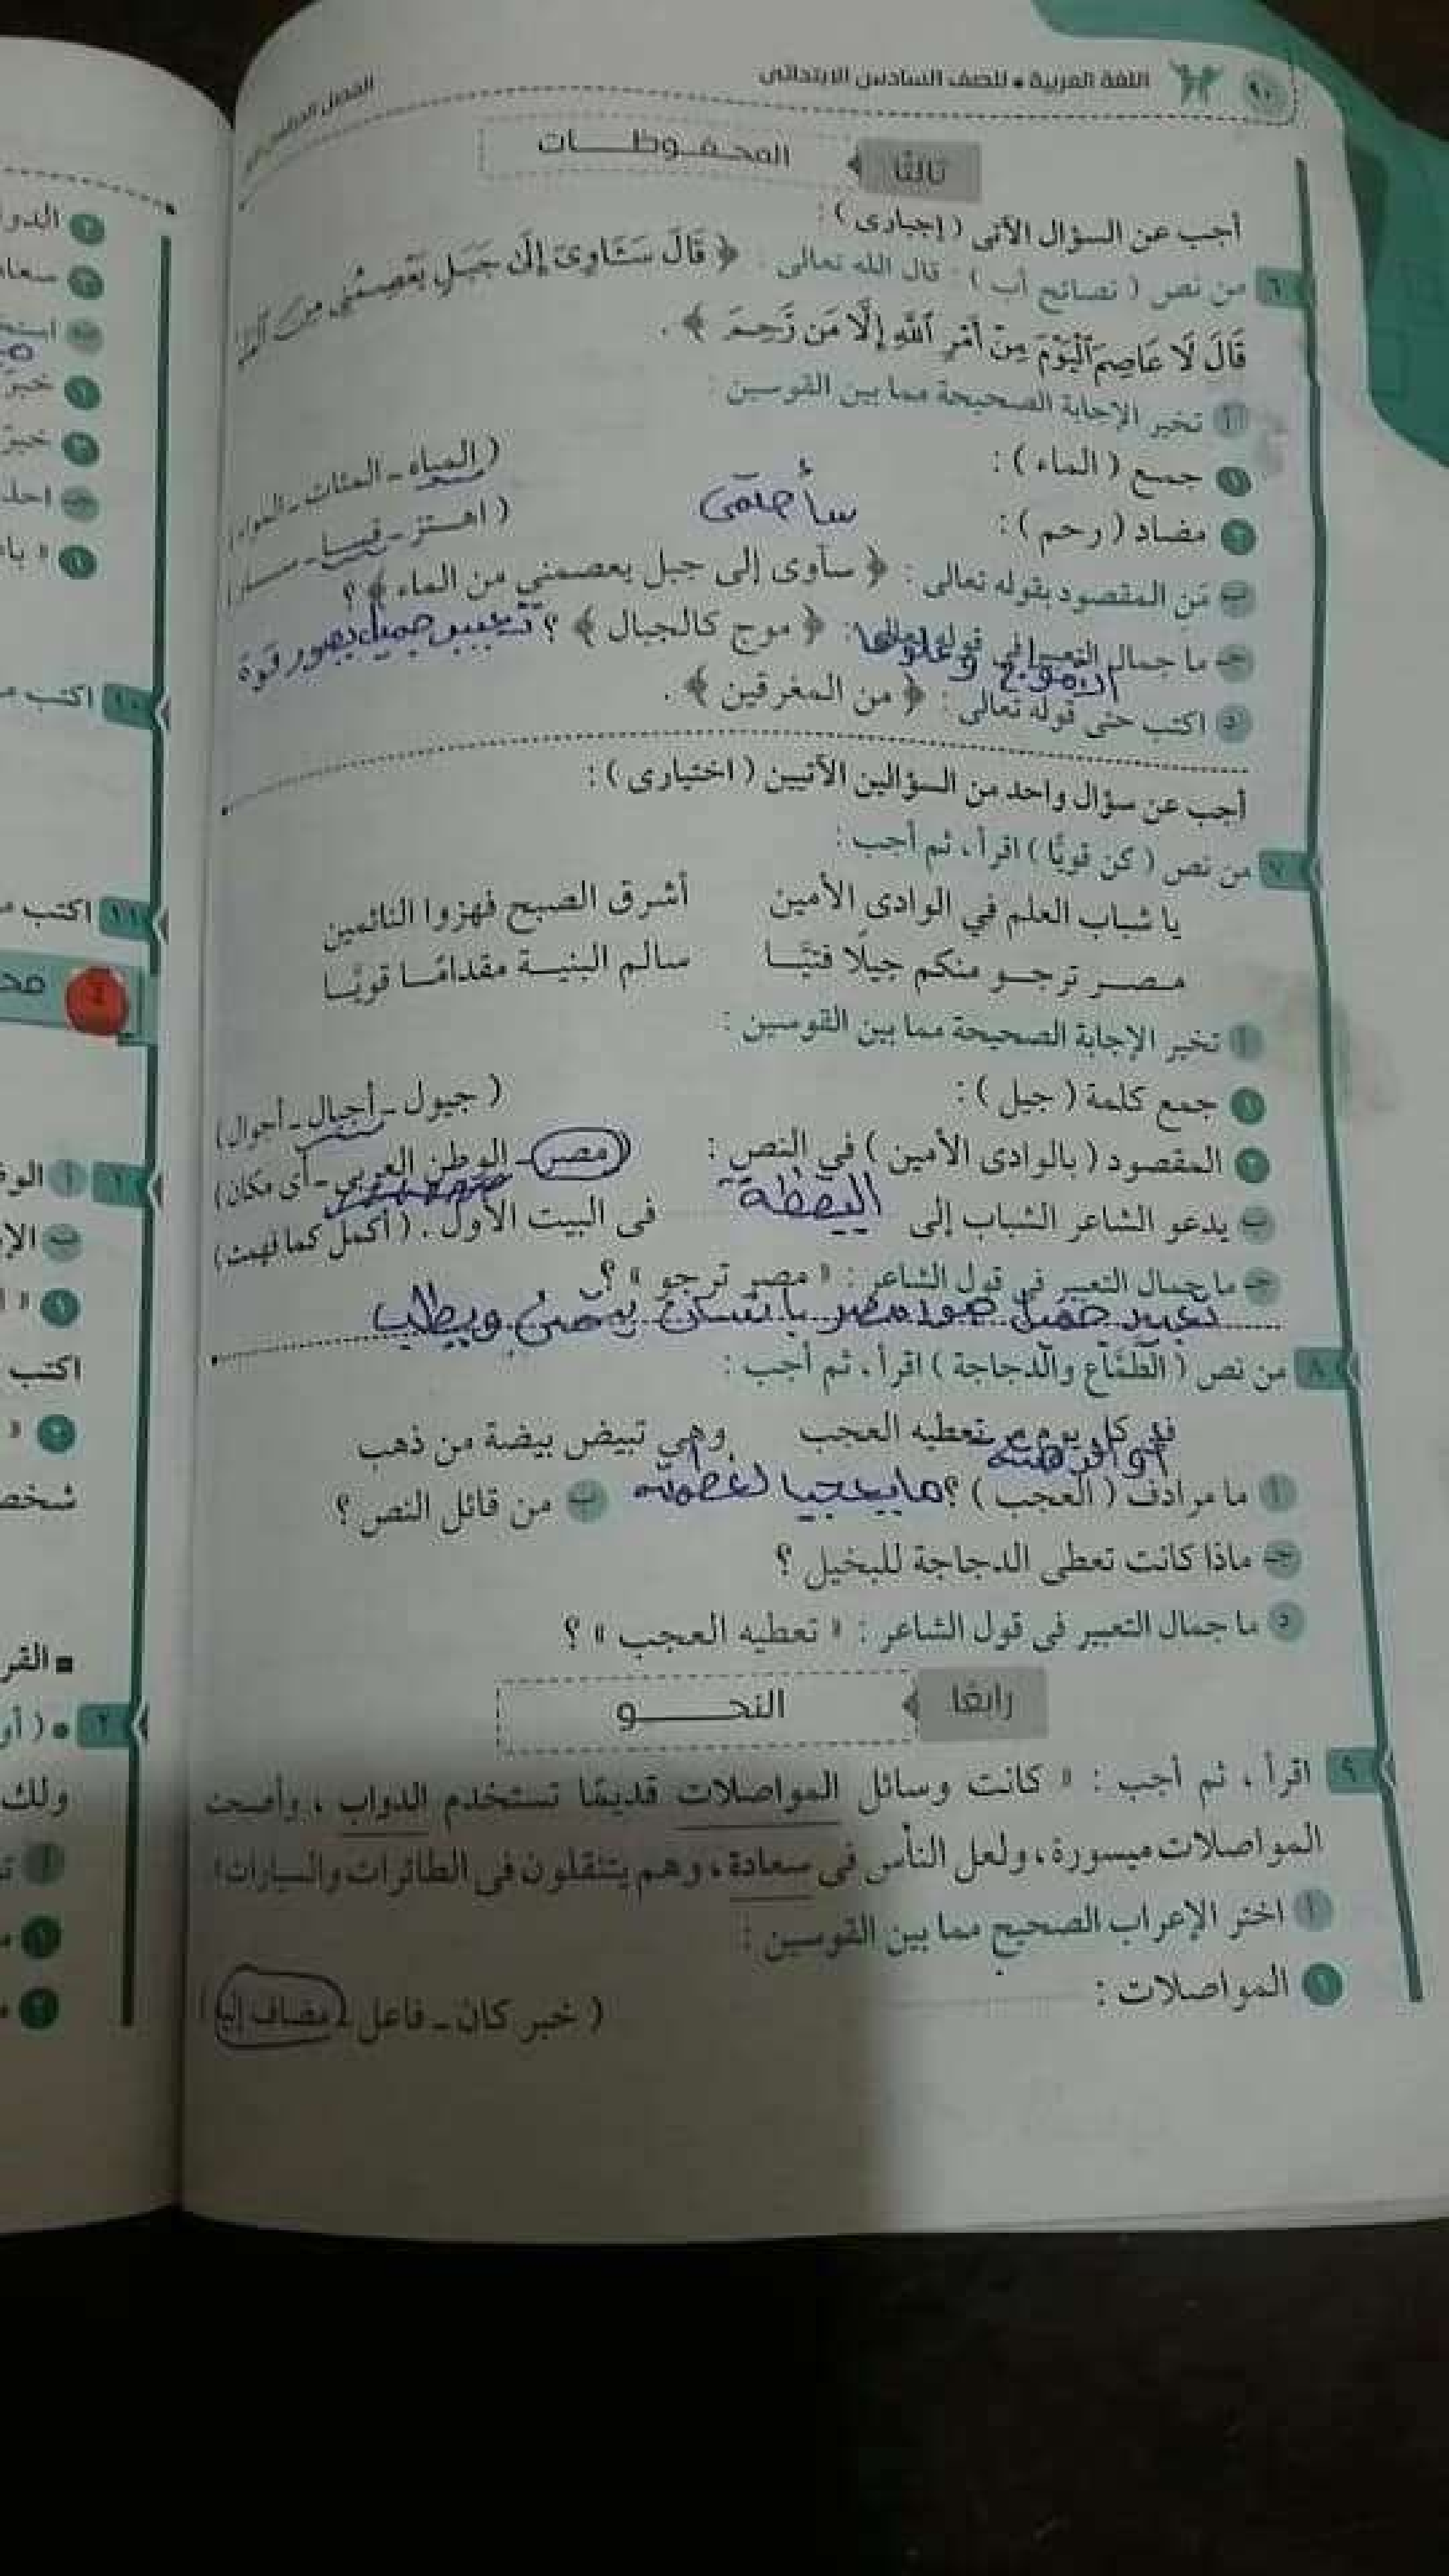 ٩٠ اللغة العربية • للصف السادس الابتدائى
ثالثًا المحفوظات
أجب عن السؤال الآتى ( إجبارى ) :
٦ من نص ( نصائح أب ) : قال الله تعالى : ﴿ قَالَ سَـَٔاوِىٓ إِلَىٰ جَبَلٍ يَعْصِمُنِى مِنَ
قَالَ لَا عَاصِمَ ٱلْيَوْمَ مِنْ أَمْرِ ٱللَّهِ إِلَّا مَن رَّحِمَ ﴾ .
أ تخير الإجابة الصحيحة مما بين القوسين :
١ جمع ( الماء ) : ( المياه ـ المئات ـ
٢ مضاد ( رحم ) : ( اهتز ـ قسا ـ
سأحتمى
ب مَن المقصود بقوله تعالى : ﴿ سآوى إلى جبل يعصمني من الماء ﴾ ؟
جـ ما جمال التعبير فى قوله تعالى : ﴿ موج كالجبال ﴾ ؟ تعبير جميل يصور قوة
الموج وعلوها
د اكتب حتى قوله تعالى : ﴿ من المغرقين ﴾ .
أجب عن سؤال واحد من السؤالين الآتيين ( اختيارى ) :
٧ من نص ( كن قويًّا ) اقرأ ، ثم أجب :
يا شباب العلم في الوادى الأمين أشرق الصبح فهزوا النائمين
مصر ترجو منكم جيلًا فتيًّا سالم البنية مقدامًا قويًّا
أ تخير الإجابة الصحيحة مما بين القوسين :
١ جمع كلمة ( جيل ) : ( جيول ـ أجيال ـ أجوال )
٢ المقصود ( بالوادى الأمين ) في النص : ( مصر ـ الوطن العربي ـ أى مكان )
ب يدعو الشاعر الشباب إلى اليقظة فى البيت الأول . ( أكمل كما فهمت )
جـ ما جمال التعبير فى قول الشاعر : « مصر ترجو » ؟
تعبير جميل صور مصر بإنسان يتمنى ويطلب
٨ من نص ( الطَّمَّاع والدجاجة ) اقرأ ، ثم أجب :
فى كل يوم تعطيه العجب وهي تبيض بيضة من ذهب
أ ما مرادف ( العجب ) ؟ ب من قائل النص ؟
جـ ماذا كانت تعطى الدجاجة للبخيل ؟
د ما جمال التعبير فى قول الشاعر : « تعطيه العجب » ؟
رابعًا النحو
٩ اقرأ ، ثم أجب : « كانت وسائل المواصلات قديمًا تستخدم الدواب ، وأصبحت
المواصلات ميسورة ، ولعل الناس فى سعادة ، وهم يتنقلون فى الطائرات والسيارات »
أ اختر الإعراب الصحيح مما بين القوسين :
١ المواصلات : ( خبر كان ـ فاعل ـ مضاف إليه )